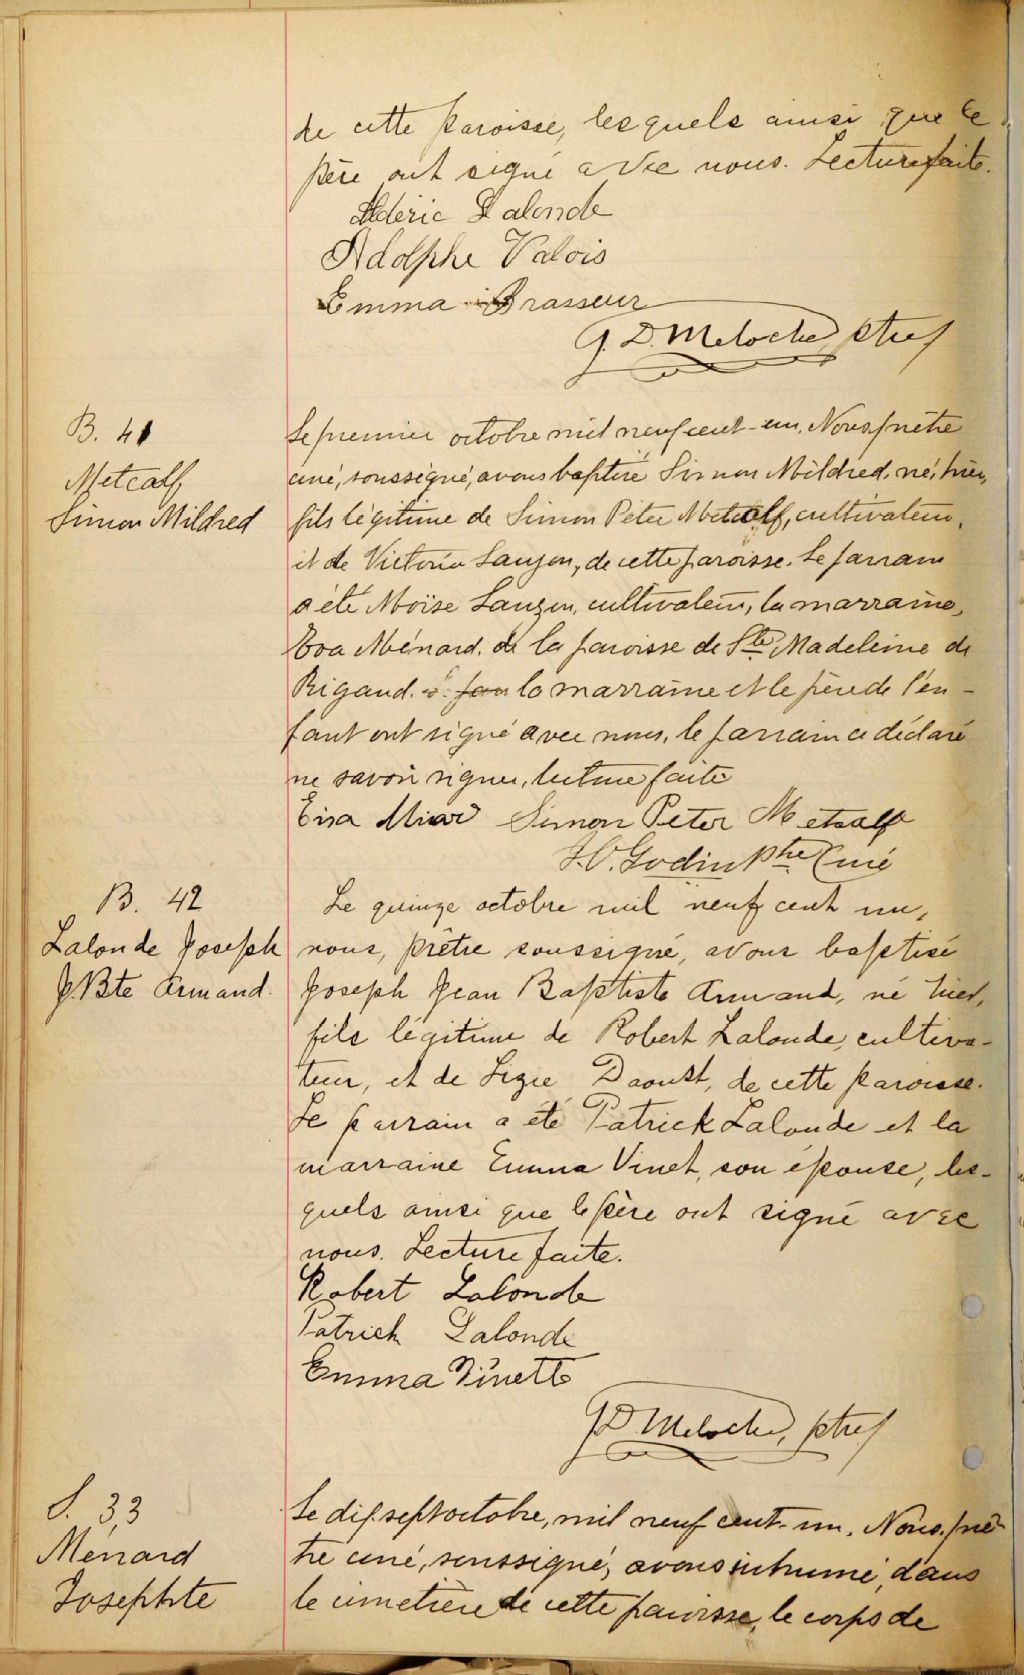 de cette paroisse, lesquels ainsi que le
père ont signé avec nous. Lecture faite.
Adéric Lalonde
Adolphe Valois
Emma Brasseur
J. D. Meloche, ptre
B. 41
Metcalf
Simon Mildred
Le premier octobre mil neuf cent-un, Nous, prêtre
curé, soussigné, avons baptisé Simon Mildred, né, hier,
fils légitime de Simon Peter Metcalf, cultivateur,
et de Victoria Lauzon, de cette paroisse. Le parrain
a été Moïse Lauzon, cultivateur, la marraine,
Eva Ménard, de la paroisse de Ste Madeleine de
Rigaud. la marraine et le père de l'en-
fant ont signé avec nous, le parrain a déclaré
ne savoir signer, lecture faite
Simon Peter Metcalf
Godin ptre Curé
B. 42
Lalonde Joseph
J. Bte Armand.
Le quinze octobre mil neuf cent un,
nous, prêtre soussigné, avons baptisé
Joseph Jean Baptiste Armand, né hier,
fils légitime de Robert Lalonde, cultiva-
teur, et de Lizie Daoust, de cette paroisse.
Le parrain a été Patrick Lalonde et la
marraine Emma Vinet, son épouse, les-
quels ainsi que le père ont signé avec
nous. Lecture faite.
Robert Lalonde
Patrick Lalonde
Emma Vinette
J. D. Meloche, ptre
S. 33
Ménard
Josephte
Le dix sept octobre, mil neuf cent-un, Nous, prê-
tre curé, soussigné, avons inhumé, dans
le cimetière de cette paroisse, le corps de